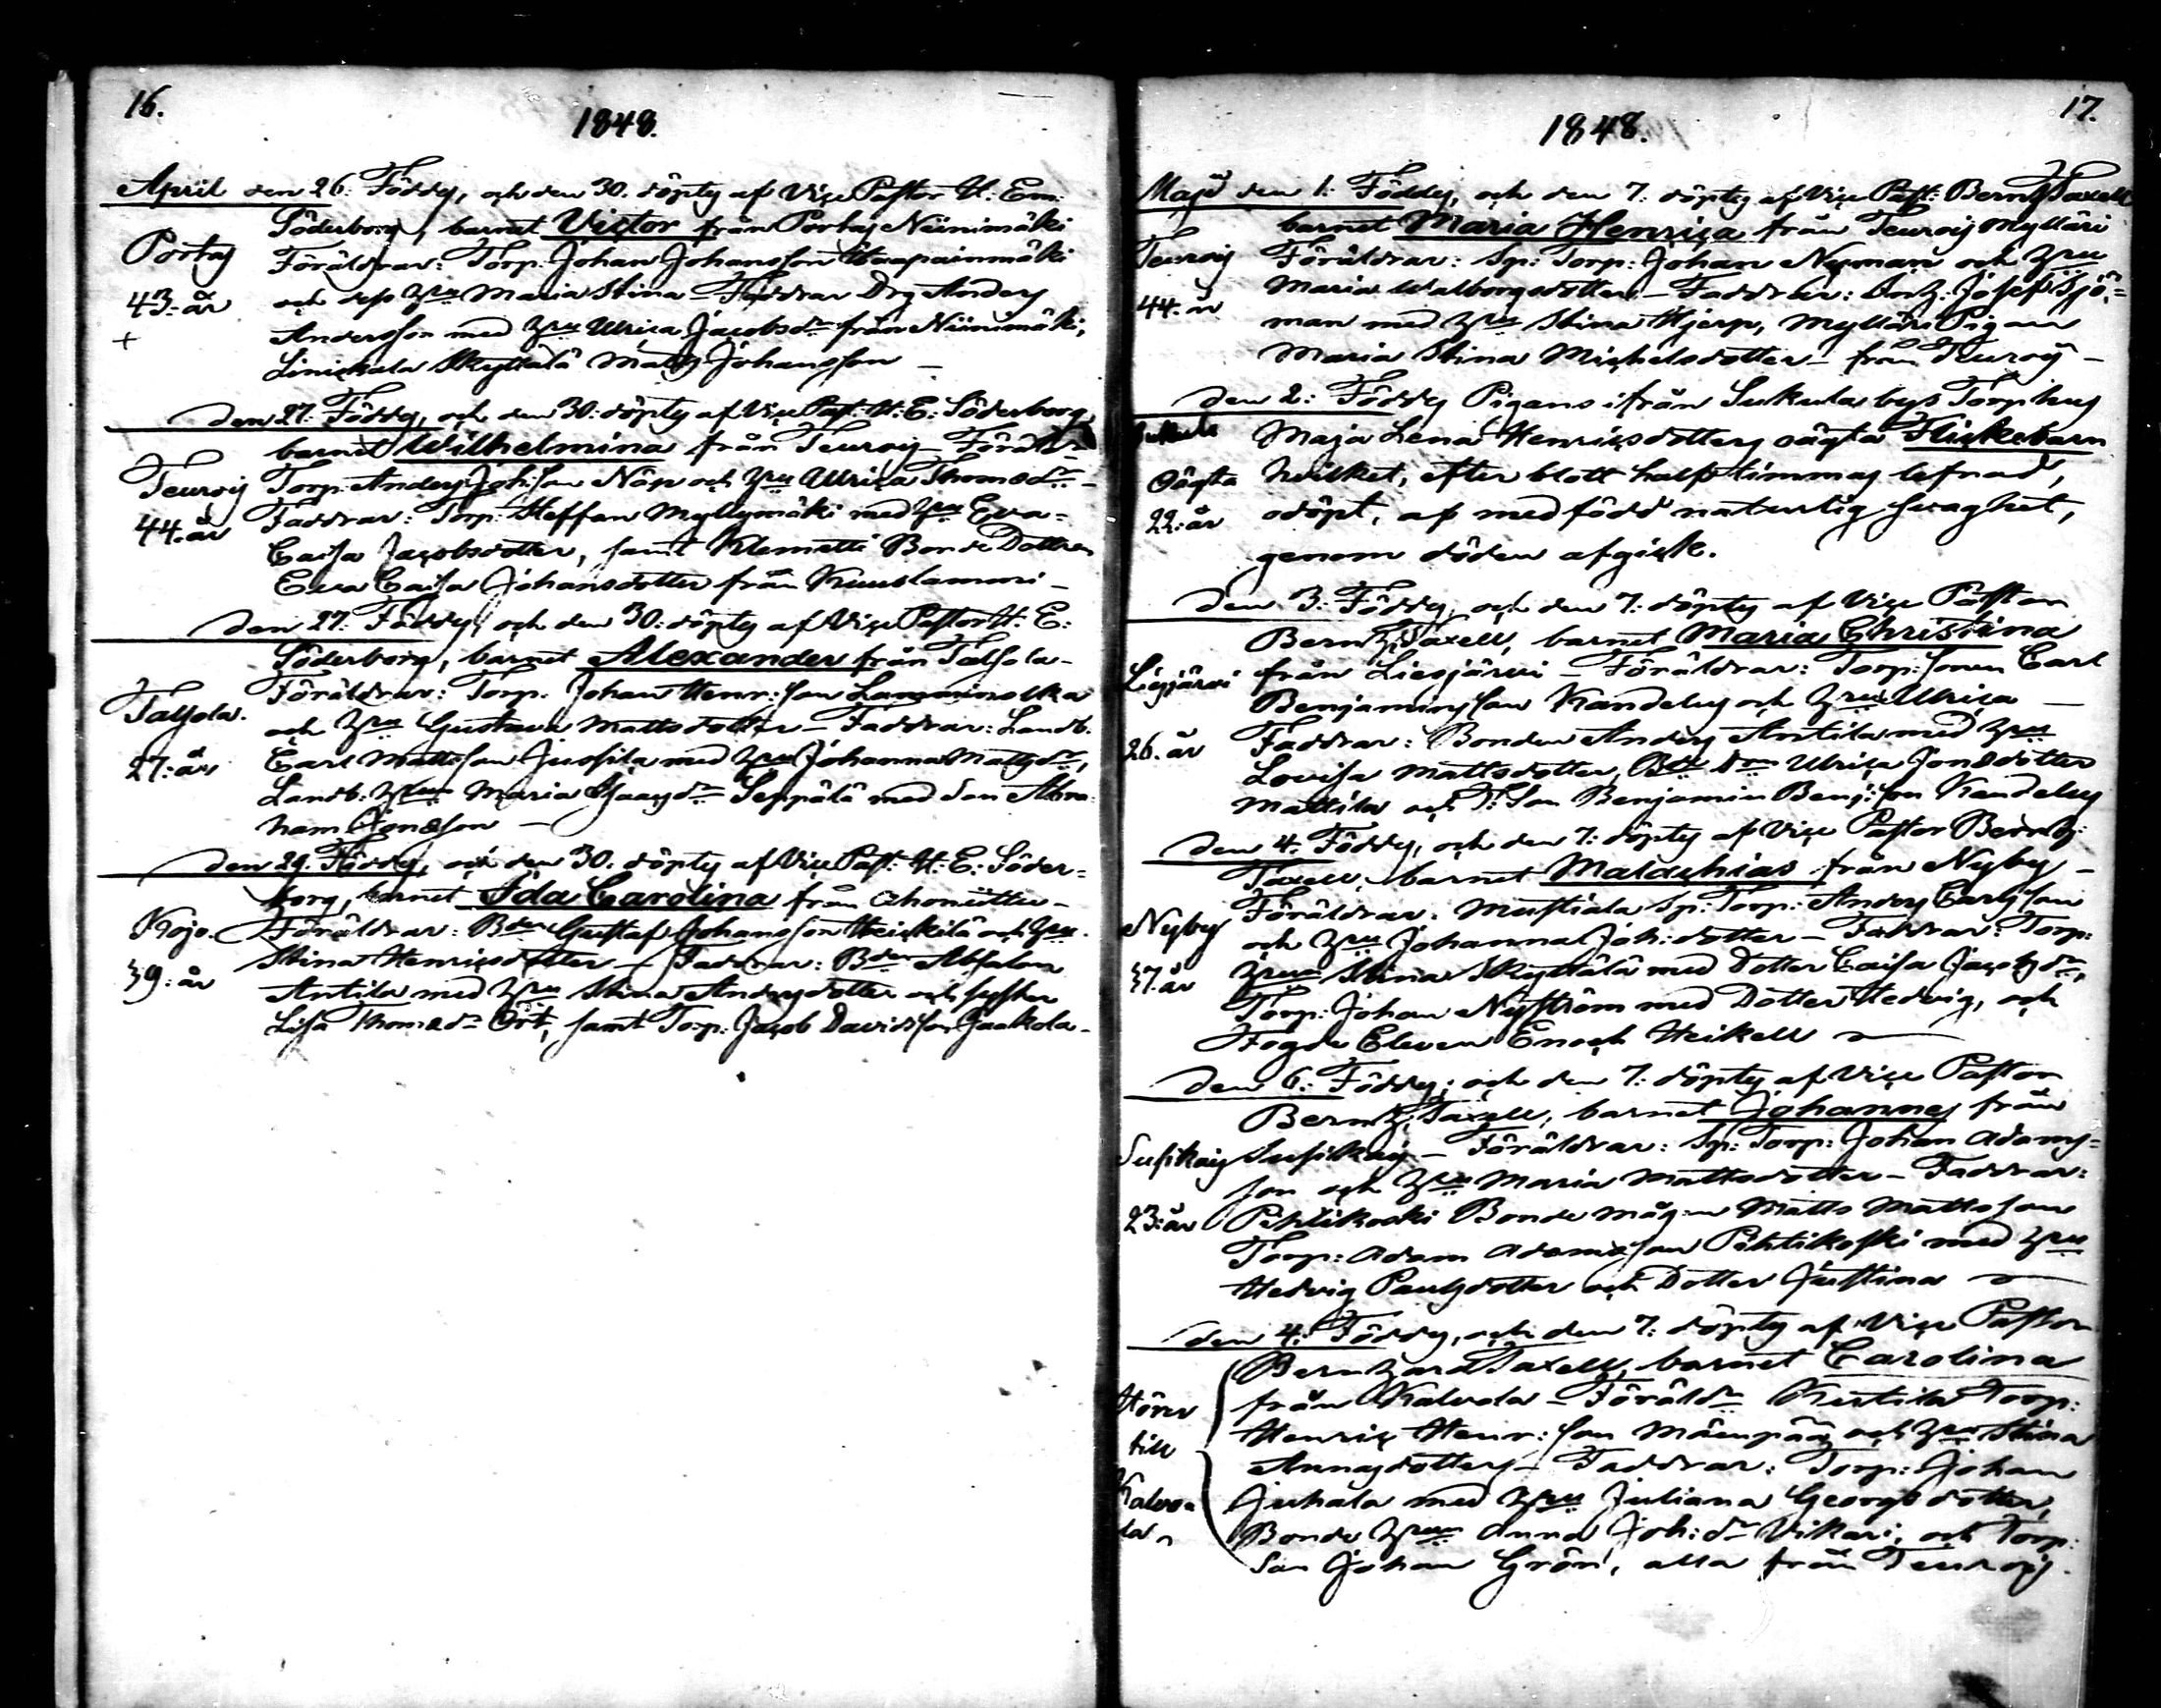 16.
1848.
April den 26. Föddes, och den 30. döptes af Vice Pastor H. Em:
Söderborg, barnet Victor från Portas Niinimäki
Portas
Föräldrar: Torp. Johan Johansson Haapainmäki
43. år
och dess Hru Maria Stina - Faddrar Drg Anders
+
Andersson med Hru Ulrica Jacobsdr från Niinimäki,
Liniskala Skyttälä Matts Johansson -
den 27. Föddes, och den 30. döptes af Vice Past. H. E. Söderborg,
barnet Wilhelmina från Teurois - Föräldr
Teurois
Torp. Anders Joh:son Näse och Hru Ulrica Thomsdr -
44. år
Faddrar: Torp. Steffan Myllymäki med Hru Eva-
Caisa Jacobsdotter, samt Klemetti Bonde Dottren
Eva Caisa Johansdotter från Kuuslammi -
den 27. Föddes, och den 30. döptes af Vice Pastor H. E:
Söderborg, barnet Alexander från Talsola -
Talsola.
Föräldrar: Torp. Johan Henr:son Lamminoska
och Hru Gustava Mattsdotter - Faddrar: Landb.
27. år
Carl Mattsson Jussila med Hru Johanna Mattsdr,
Landb. Hrun Maria Isaacsdr Seppälä med Son Abra-
ham Jonasson -
den 29. Föddes, och den 30. döptes af Vice Past. H. E. Söder-
borg, barnet Ida Carolina från
Kojo.
Föräldrar: Bden Gustaf Johansson Heickilä och Hru
39. år
Stina Henricsdotter - Faddrar: Bden Absalon
Antila med Hru Stina Andersdotter och syster
Lisa Thomsdr Ört, samt Torp. Jacob Davidsson Jaakola -
17.
1848.
Maji den 1. Föddes, och den 7. döptes af Vice Past: Bernh. Taxell
barnet Maria Henrica från Teurois Mylläri
Teurois
Föräldrar: Sp: Torp: Johan Nyman och Hru
44. år
Maria Walborgsdotter - Faddrar: Josef Sjö-
man med Hru Stina Hjerp, Mylläri Pigan
Maria Stina Michelsdotter - från Teurois -
den 2. Föddes Pigans ifrån Sukula bys Torphus
Sukula
Maja Lena Henricsdotters oägta Flickebarn
Oägta
hvilket, efter blott half timmas lefnad,
22. år
odöpt, af medfödd naturlig svaghet,
genom döden afgick.
den 3. Föddes, och den 7. döptes af Vice Pastor
Bernh. Taxell, barnet Maria Christina
Liesjärvi
från Liesjärvi - Föräldrar: Torp: sonen Carl
Benjaminsson Kandelus och Hru Ulrica -
26. år
Faddrar: Bonden Anders Antila med Hru
Lovisa Mattsdotter, Bde Don Ulrica Jonsdotter
Mattila och T: Son Benjamin Benj:son Kandelus
den 4. Föddes, och den 7. döptes af Vice Pastor Bernh:
Taxell, barnet Malachias från Nyby -
Nyby
Föräldrar: Mustiala Sp: Torp: Anders Carlsson
och Hru Johanna Joh:dotter - Faddrar: Torp:
37. år
Hrun Stina Skyttälä med Dotter Caisa Jacobsdr,
Torp: Johan Nyström med Dotter Hedvig, och
Fogde Eleven Enoch Heikell
den 6. Föddes, och den 7. döptes af Vice Pastor
Bernh. Taxell, barnet Johannes från
Susikas
Susikas - Föräldrar: Sp: Torp: Johan Adams-
son och Hru Maria Mattsdotter - Faddrar:
23. år
Pihtikoski Bonde mågen Matts Mattsson
Torp: Adam Adamsson Pihtikoski med Hru
Hedvig Paulsdotter och Dotter Justina
den 4. Föddes, och den 7. döptes af Vice Pastor
Bernhard Taxell, barnet Carolina
Hörer
från Kalvola - Föräldr Kutila Torp:
till
Henric Henr:son Mäenpää och Hru Stina
Annasdotter - Faddrar: Torp: Johan
Kalvo-
Juhala med Hru Juliana Georgsdotter,
la
Bonde Hrun Anna Joh:dr Vikari, och Torp:
Son Johan Grön, alla från Teurois.